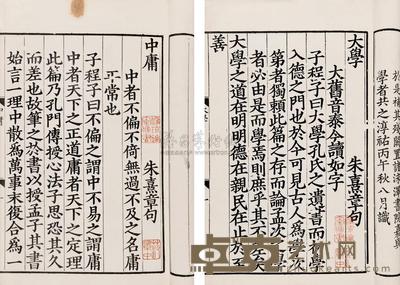 學者共之淳祐丙午秋八月識
大學　朱熹章句
大舊音泰今讀如字
子程子曰大學孔氏之遺書而初學
入德之門也於今可見古人為學次
第者獨賴此篇之存而論孟次之學
者必由是而學焉則庶乎其不差矣
大學之道在明明德在親民在止於至
善
中庸　朱熹章句
中者不偏不倚無過不及之名庸
平常也
子程子曰不偏之謂中不易之謂庸
中者天下之正道庸者天下之定理
此篇乃孔門傳授心法子思恐其久
而差也故筆之於書以授孟子其書
始言一理中散為萬事末復合為一